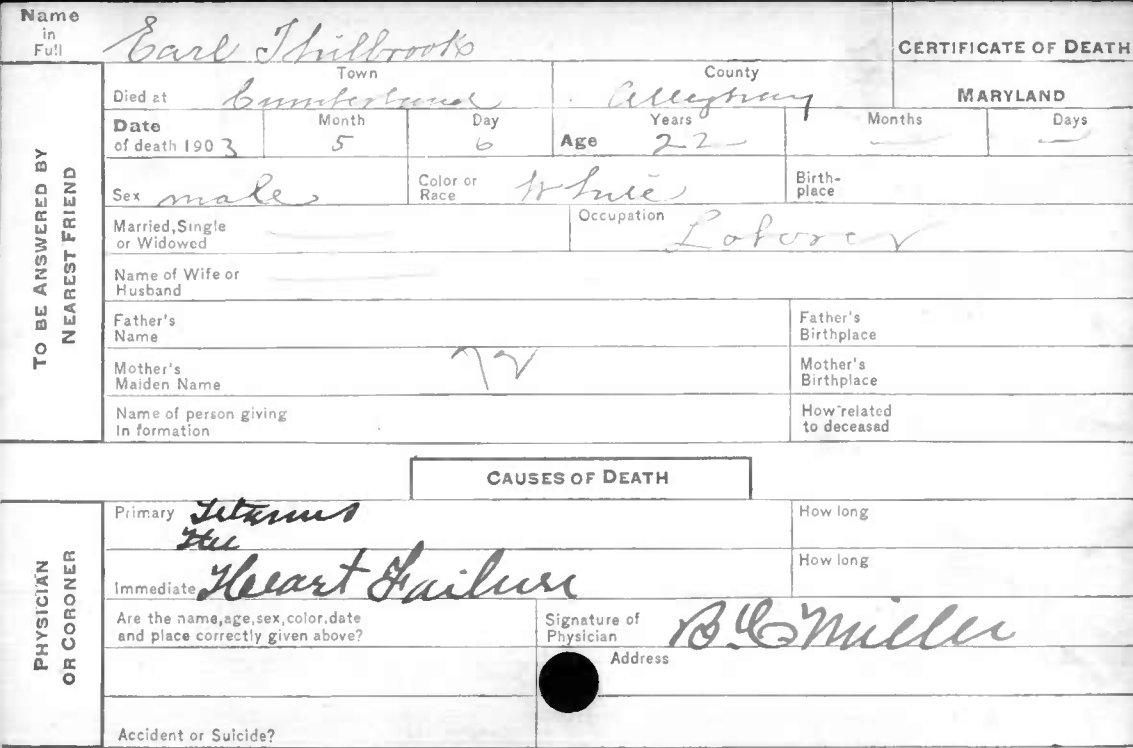 Name in Full Earl Thilbrooks
CERTIFICATE OF DEATH
TO BE ANSWERED BY NEAREST FRIEND
Died at Town Cumberland County Alleghany MARYLAND
Date of death 1903 Month 5 Day 6 Age Years 22 Months — Days —
Sex male Color or Race White Birth-place
Married, Single or Widowed Occupation Laborer
Name of Wife or Husband
Father's Name Father's Birthplace
Mother's Maiden Name Mother's Birthplace
Name of person giving In formation How related to deceasad
CAUSES OF DEATH
PHYSICIAN OR CORONER
Primary Tetanus How long
Immediate Heart Failure How long
Are the name, age, sex, color, date and place correctly given above? Signature of Physician B Miller
Address
Accident or Suicide?